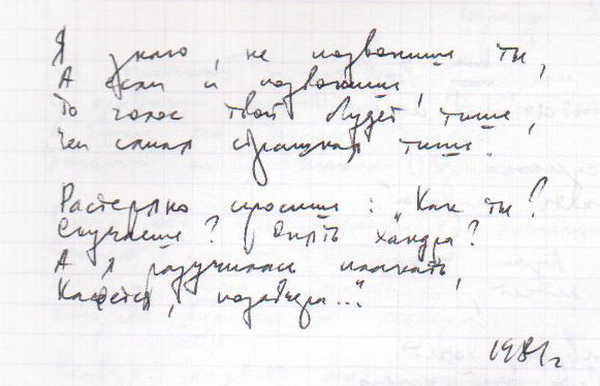 Я знаю, не позвонишь ты,
А если и позвонишь,
То голос твой будет тише,
Чем самая страшная тишь.
Растерянно спросишь: "Как ты?
Скучаешь? Опять хандра?
А я разучилась плакать,
Кажется, позавчера..."
1981 г